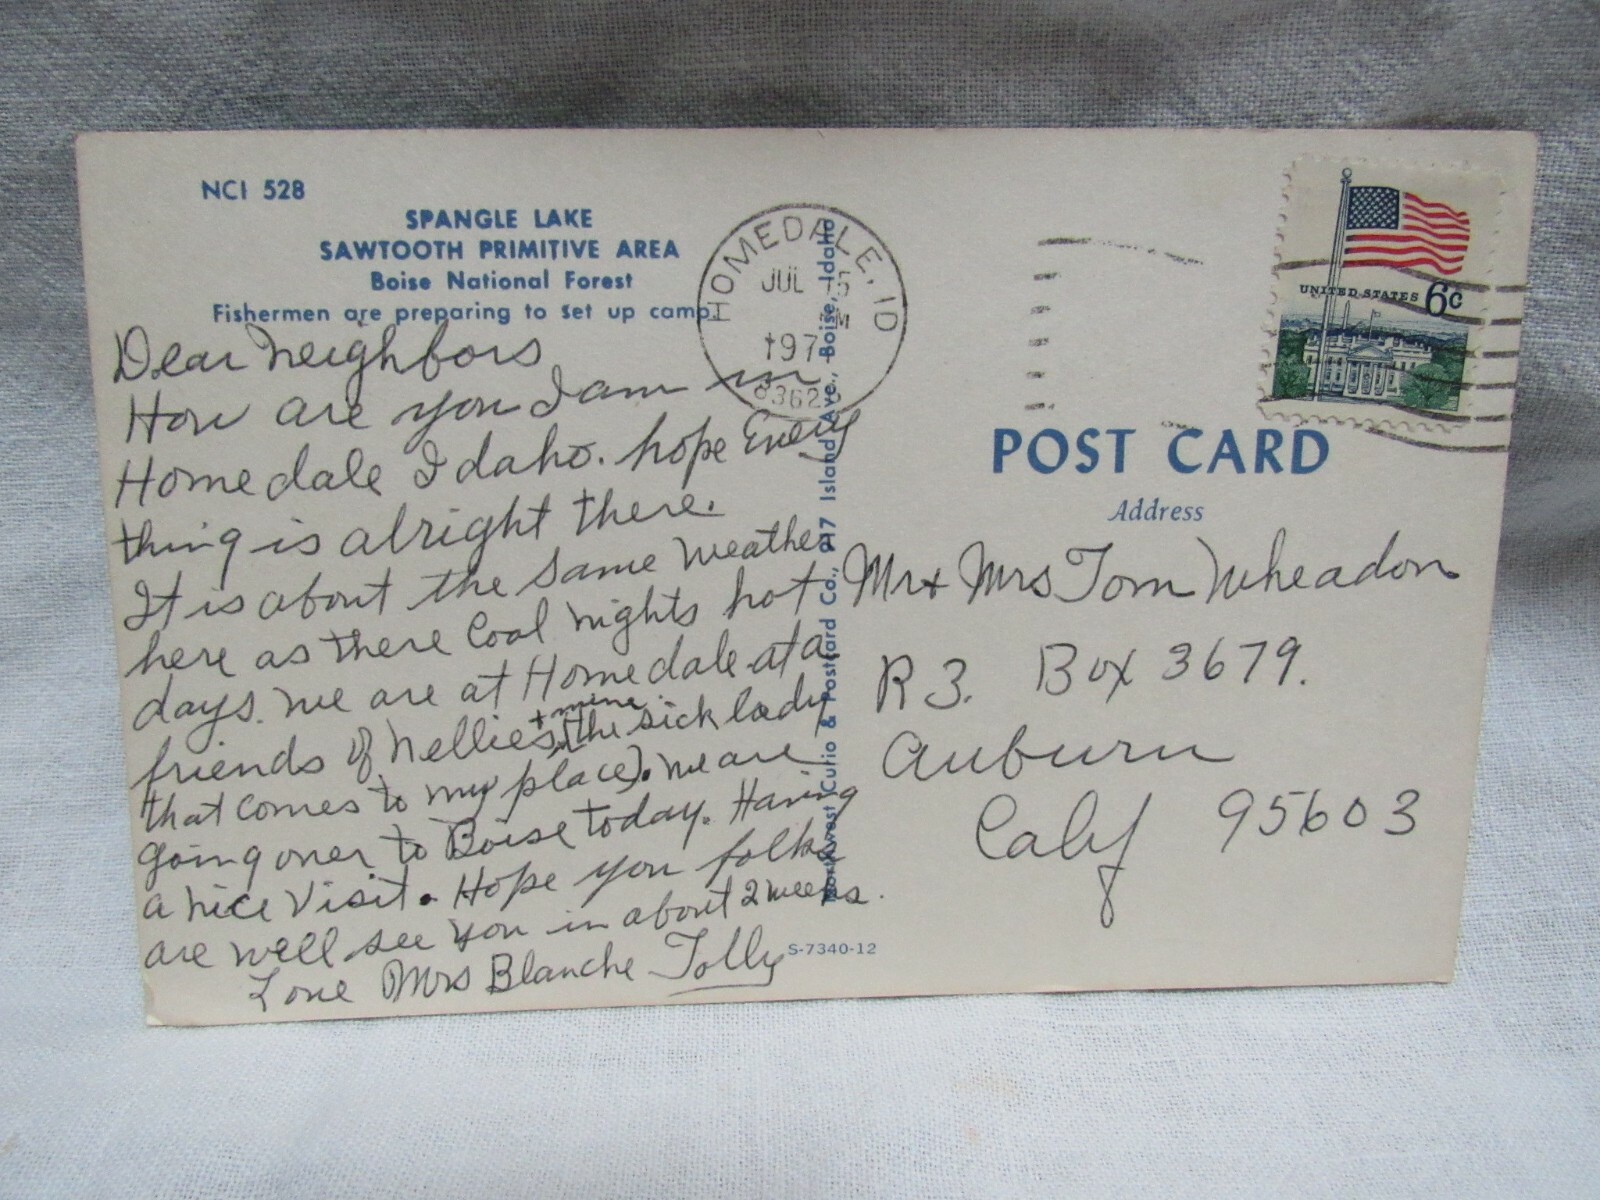 NCI 528
SPANGLE LAKE
SAWTOOTH PRIMITIVE AREA
Boise National Forest
Fishermen are preparing to set up camp.
Dear Neighbors
How are you I am in
Homedale Idaho. hope Every
thing is alright there.
It is about the same weather
here as there Cool nights hot
days. we are at Homedale at a
friends of Nellies + mine (the sick lady
that comes to my place). we are
going over to Boise today. Having
a nice Visit. Hope you folks
are well see you in about 2 weeks.
Love Mrs Blanche Tolly
S-7340-12
Northwest Curio & Postcard Co., 217 Island Ave., Boise, Idaho
HOMEDALE, ID
JUL
PM
197
8362
UNITED STATES 6c
POST CARD
Address
Mr + Mrs Tom Wheadon
R 3. Box 3679.
Auburn
Calif 95603